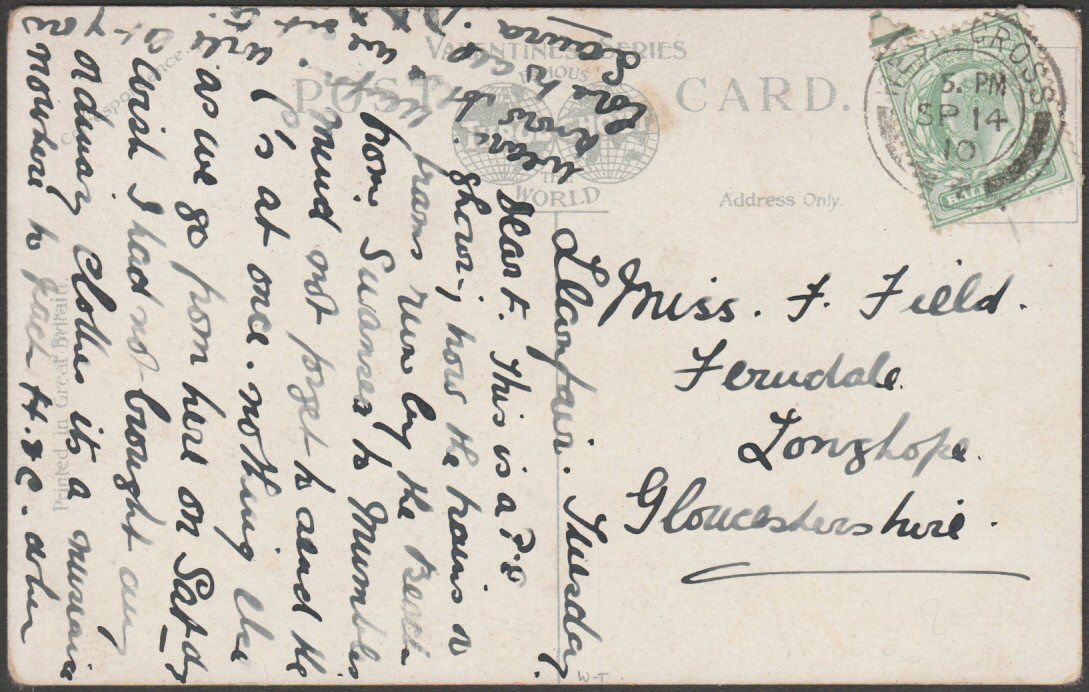 VALENTINE'S SERIES
FAMOUS
THROUGHOUT
THE
WORLD
POST CARD.
Correspondence
Address Only.
Printed in Great Britain
CROSS
5. PM
SP 14
10
Miss. F. Field.
Ferndale.
Longhope.
Gloucestershire.
Llanfair. Tuesday.
Dear F. This is a P.C
showing how the trains &
trams run by the Beach
from Swansea to Mumbles
mind not forget to send the
's at once. nothing else
as we go from here on Sat-dy
I wish I had not brought any
ordinary clothes its a nuisance
nowhere to pack H. & C. when
wear
love to all
Laura
W-T.